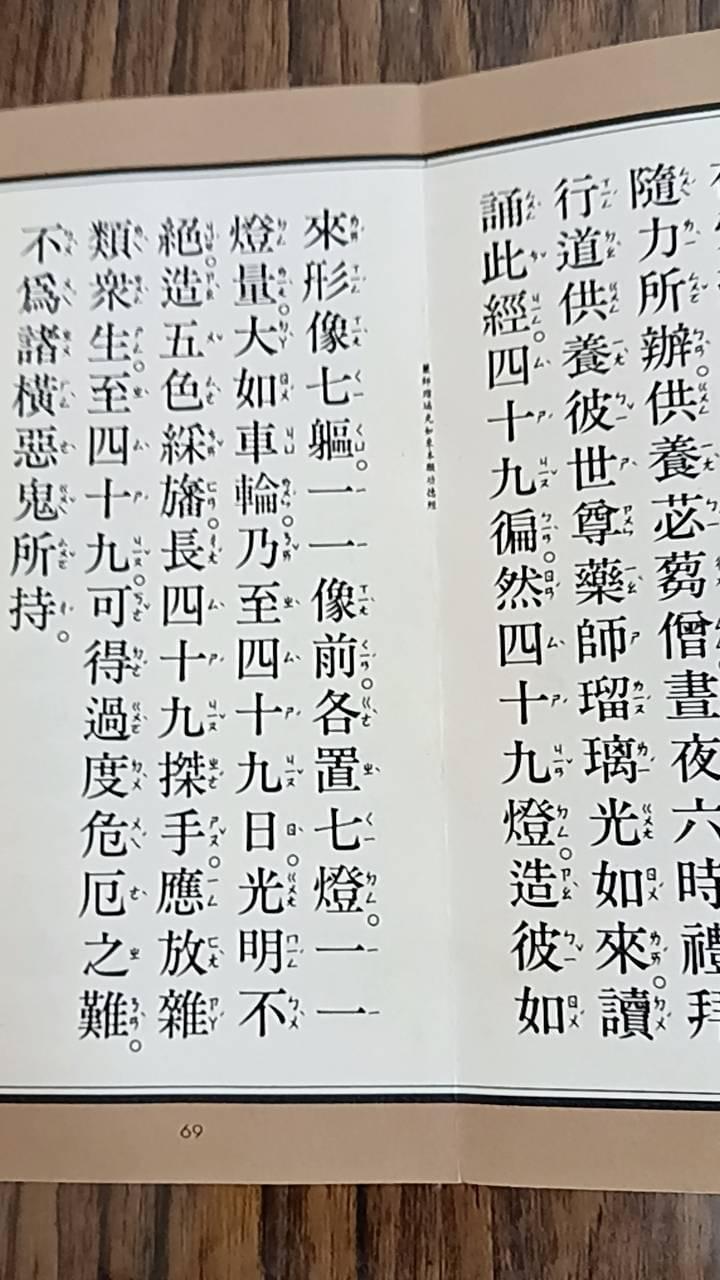 隨力所辦。供養苾芻僧。晝夜六時禮拜
行道供養彼世尊藥師瑠璃光如來。讀
誦此經。四十九徧。然四十九燈。造彼如
藥師瑠璃光如來本願功德經
來形像七軀。一一像前。各置七燈。一一
燈量。大如車輪。乃至四十九日。光明不
絕。造五色綵旛。長四十九搩手。應放雜
類眾生。至四十九。可得過度危厄之難。
不為諸橫惡鬼所持。
69